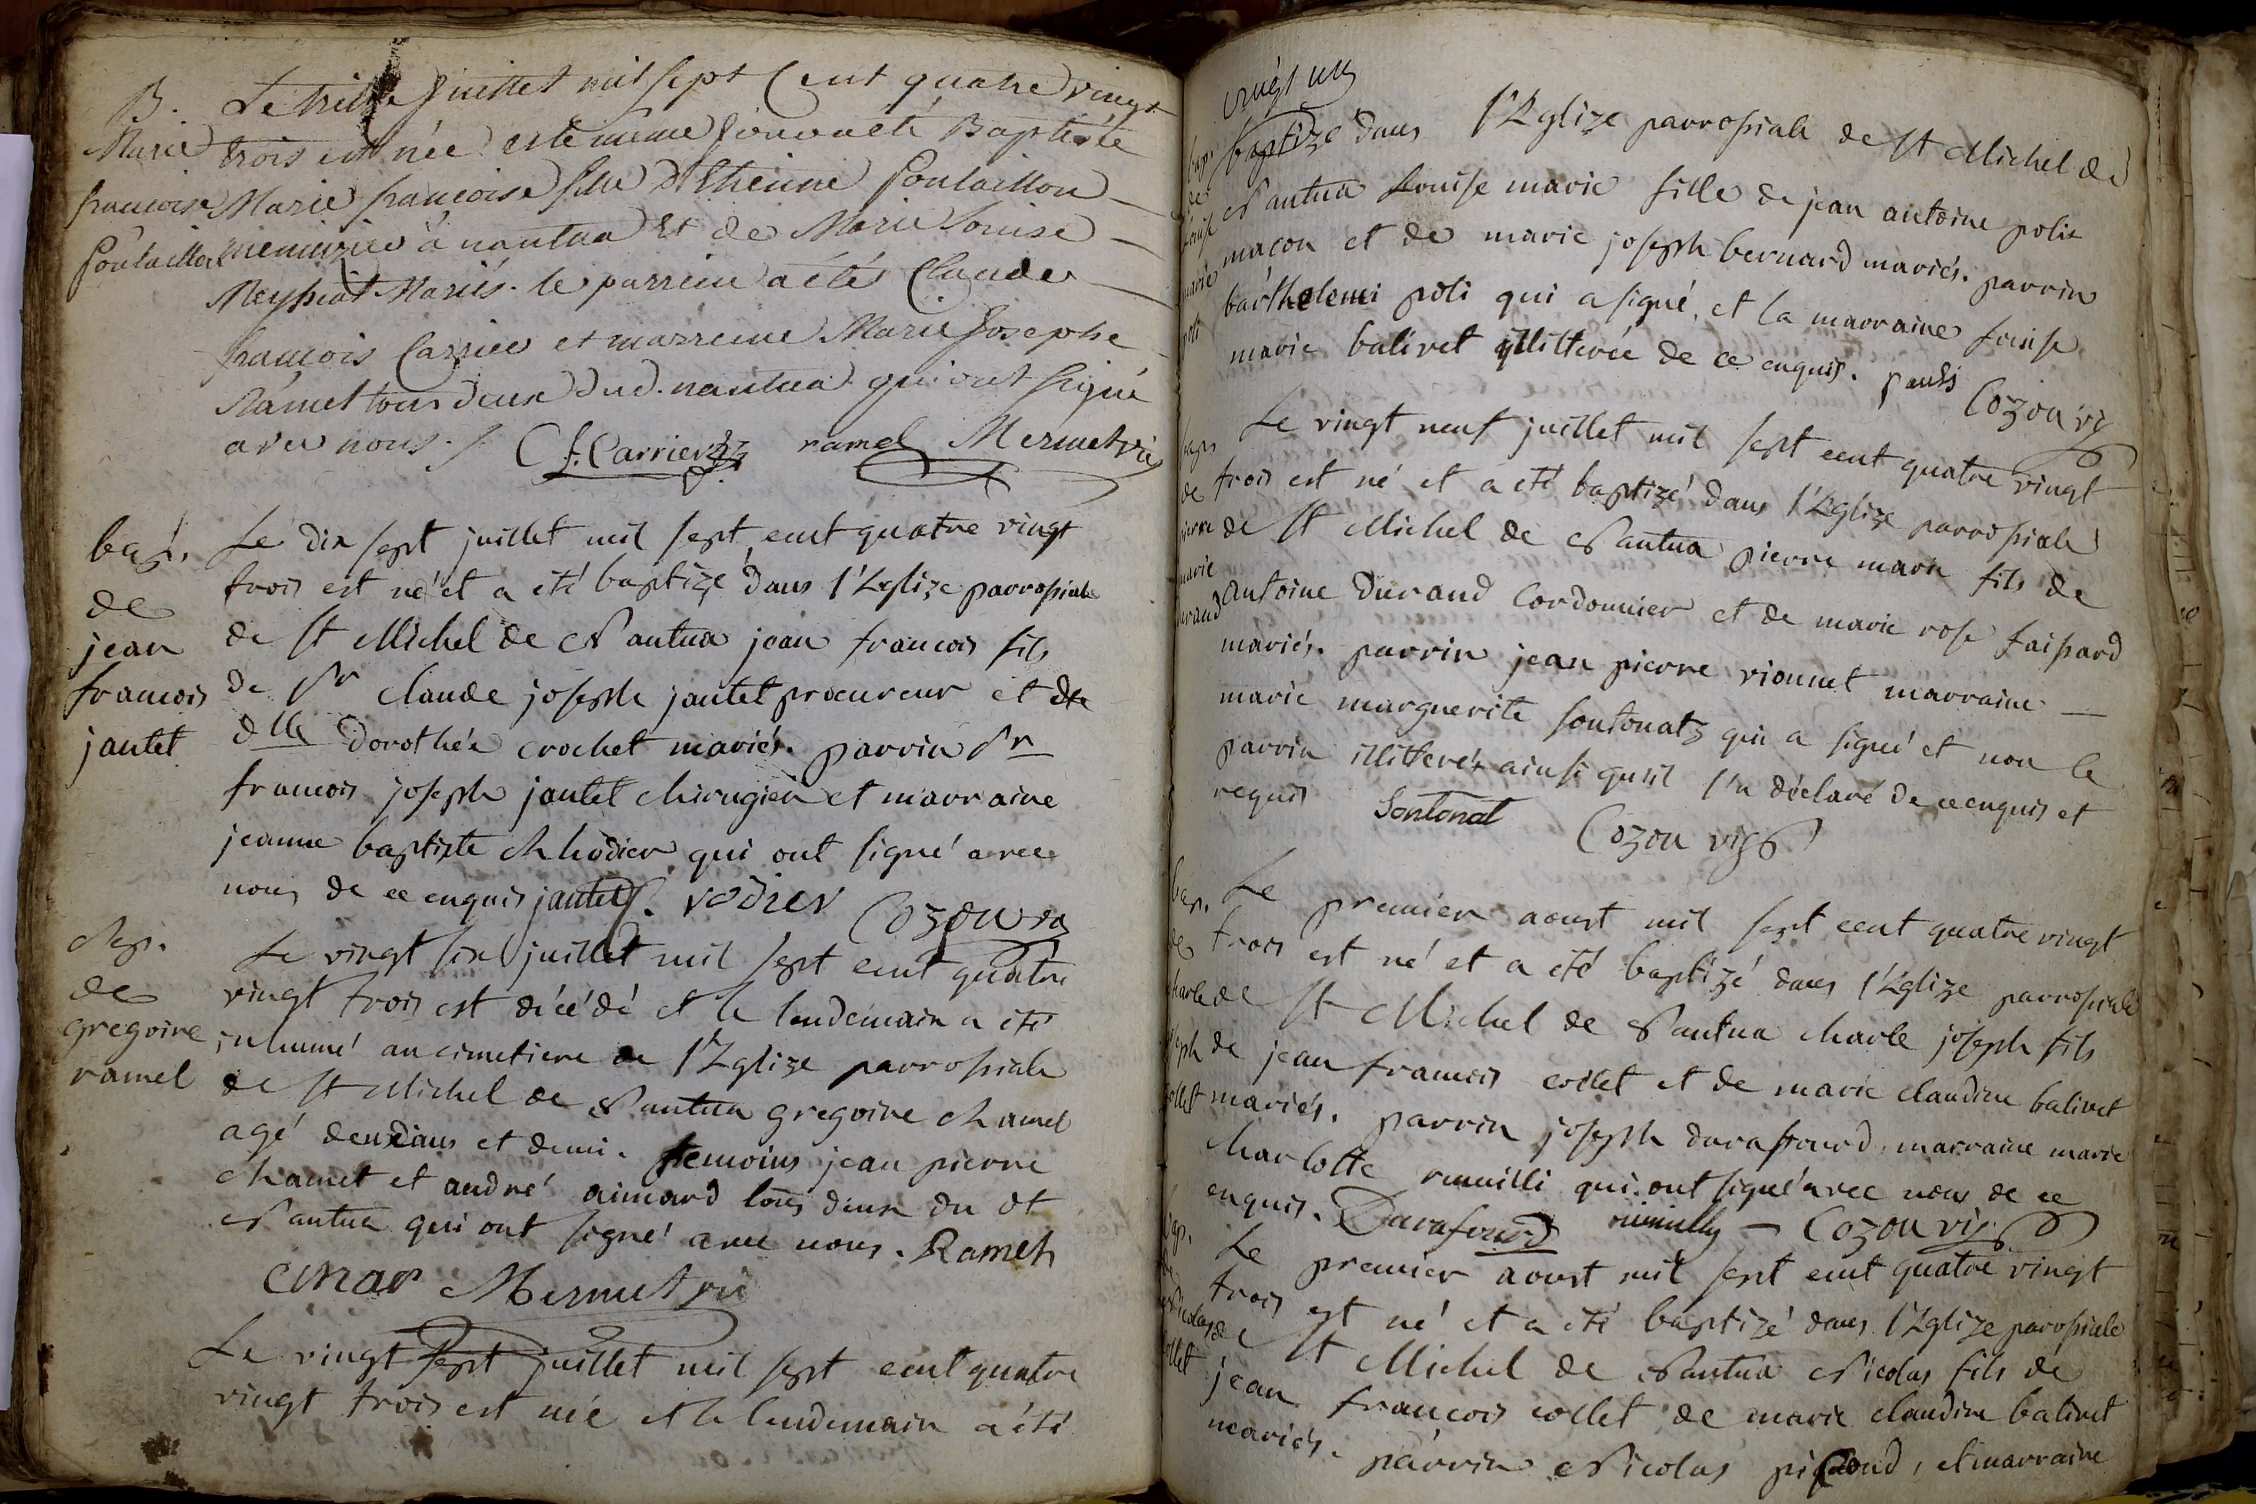 B. Le treize Juillet mil sept Cent quatre vingt
Marie trois est née est le meme jour a été Baptisée
francoise Marie francoise fille d'Etienne Goutaillon
Goutaillon menuizier à nantua Et de Marie Louise
Meyssiat Mariés. le parrein a été Claude
francois Carrier et marreine Marie Josephe
Ramel tous deux dud. nantua qui ont signé
avec nous ./. C f. Carrier ramel Mermet vic
bap. Le dix sept juillet mil sept cent quatre vingt
trois est né et a été baptizé dans l'Eglize parrossiale
de de St Michel de Nantua jean francois fils
jean de Sr claude joseph jantet procureur et de
francois dlle Dorothée crochet mariés. parrin Sr
jantet francois joseph jantet chirugien et marraine
jeanne baptiste Rhodier qui ont signé avec
nous de ce enquis jantet. rodier Cozon vic
Sep. Le vingt six juillet mil sept cent quatre
de vingt trois est décédé et le lendemain a été
gregoire inhumé au cimetiere de l'Eglize parrossiale
ramel de St Michel de Nantua gregoire Ramel
agé deux ans et demi. temoins jean pierre
Ramel et andré aimard tous deux du dt
Nantua qui ont signé avec nous. Ramel
emar Mermet vic
Le vingt sept juillet mil sept cent quatre
vingt trois est née et le lendemain a été
vingt un
bap. baptizé dans l'Eglize parrossiale de St Michel de
de Nantua Louise marie fille de jean antoine polis
Louise macon et de marie joseph bernard mariés. parrin
marie barthelemi poli qui a signé, et la marraine Louise
poli marie balivet illitterée de ce enquis. Cozon vic
bap. Le vingt neuf juillet mil sept cent quatre vingt
de trois est né et a été baptizé dans l'Eglize parrossiale
pierre de St Michel de Nantua pierre marie fils de
marie antoine Durand Cordonnier et de marie rose faisard
durand mariés. parrin jean pierre vionnet marraine
marie marguerite sontonatz qui a signé et non le
parrin illitterés ainsi qu'il l'a déclaré de ce enquis et
requis Sontonat Cozon vic
bap. Le premier aoust mil sept cent quatre vingt
de trois est né et a été baptizé dans l'Eglize parrossiale
charle de St Michel de Nantua charle joseph fils
joseph de jean francois collet et de marie claudine balivet
collet mariés. parrin joseph durafourd, marraine marie
charlotte rumilli qui ont signé avec nous de ce
enquis. Durafourd rumilly Cozon vic.
bap. Le premier aoust mil sept cent quatre vingt
de trois est né et a été baptizé dans l'Eglize parossiale
Nicolas de St Michel de Nantua Nicolas fils de
collet jean francois collet de marie claudine balivet
mariés. parrin Nicolas, et marraine